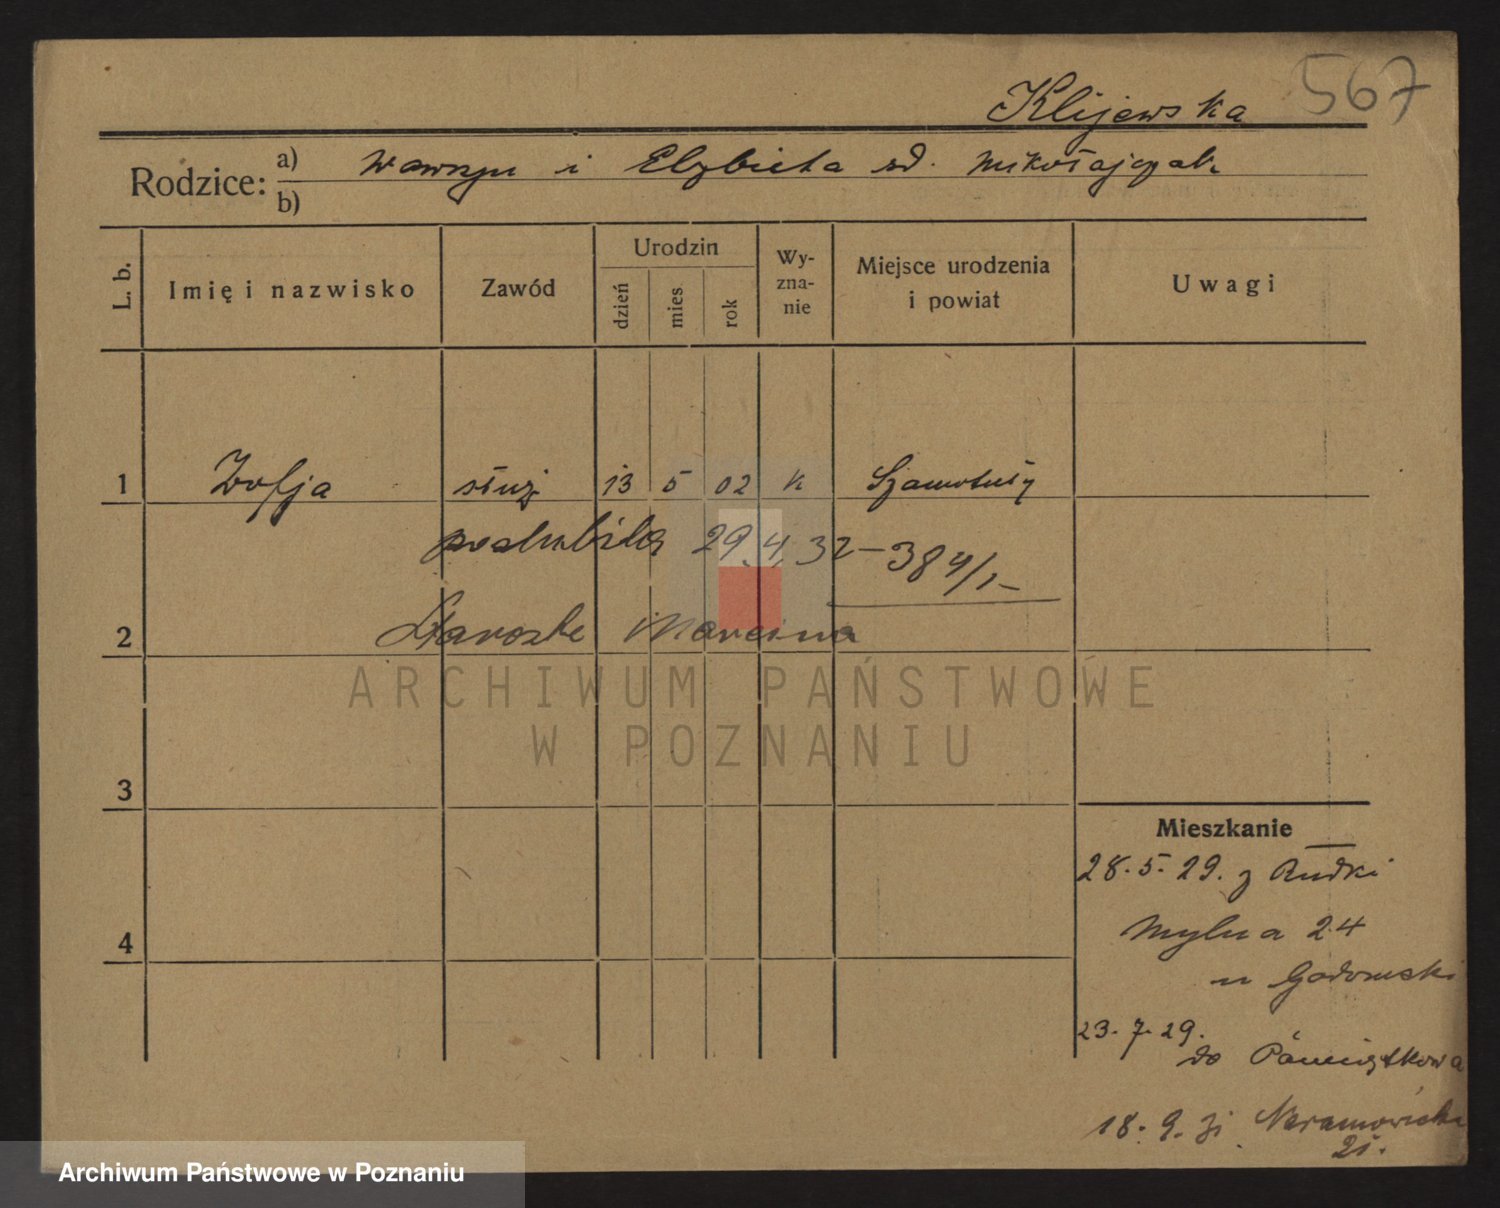 567
Klijewska
Rodzice:
a) Wawrzyn i Elzbieta zd. Mikołajczak
b)
L. b.
Imię i nazwisko
Zawód
Urodzin
dzień
mies
rok
Wy-
zna-
nie
Miejsce urodzenia
i powiat
Uwagi
1 Zofja służ 13 5 02 k Szamotuły
poślubiła 29.4.32 – 384/1–
2 Marcina
3
4
Mieszkanie
28.5.29. z Rudki
Mylna 24
u Gadomski
23.7.29.
do Pamiątkowa
18.9.31 Naramowicka
21.
ARCHIWUM PAŃSTWOWE
W POZNANIU
Archiwum Państwowe w Poznaniu